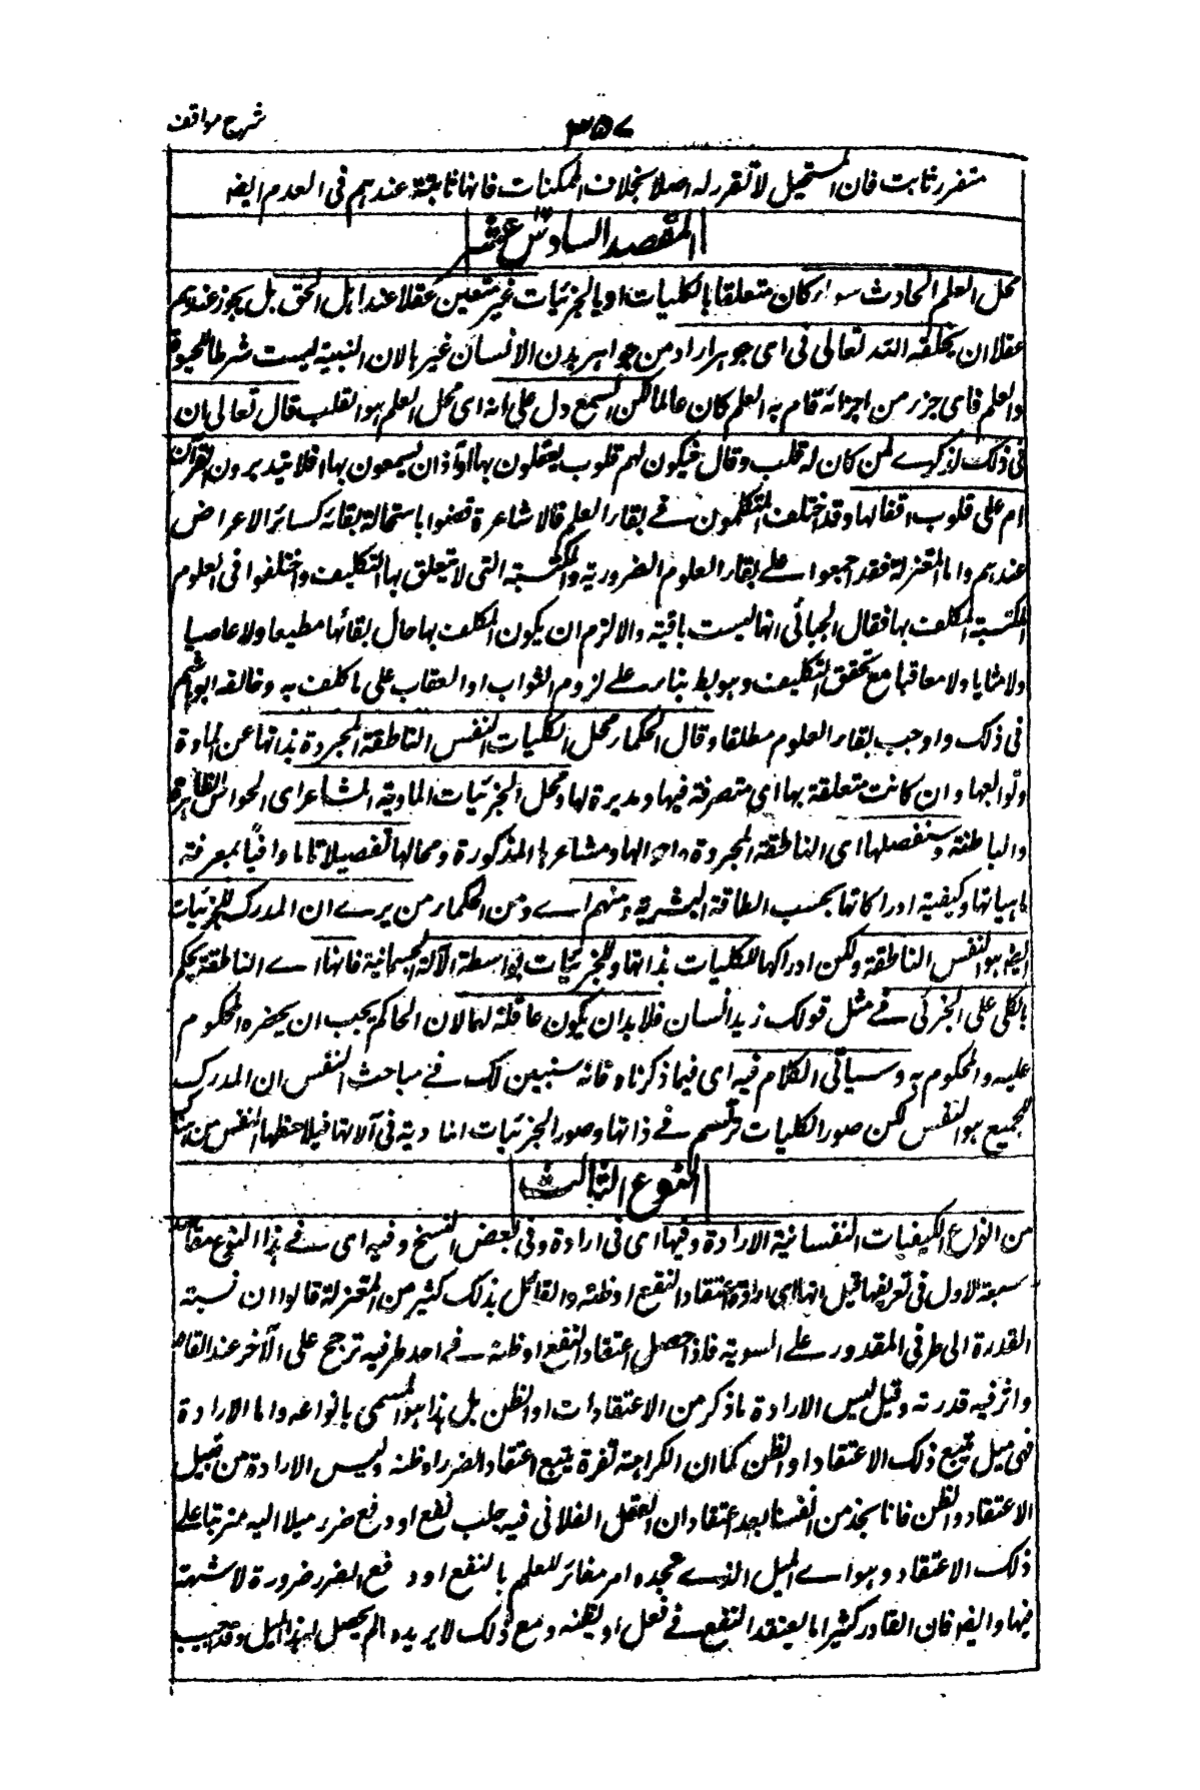 شرح مواقف
٣٥٧
متقرر ثابت فان المستحيل لا تقرر له اصلا بخلاف الممكنات فانها ثابتة عندهم فى العدم ايضا
المقصد السادس عشر
محل العلم الحادث سواء كان متعلقا بالكليات او بالجزئيات غير متعين عقلا عند اهل الحق بل يجوز عندهم
عقلا ان يخلقه الله تعالى فى اى جوهر اراد من جواهر بدن الانسان غيرها لان البنية ليست شرطا للحيوة
والعلم فاى جزء من اجزائه قام به العلم كان عالما لكن السمع دل على انه اى محل العلم هو القلب قال تعالى ان
فى ذلك لذكرے لمن كان له قلب وقال فيكون لهم قلوب يعقلون بها او آذان يسمعون بها افلا يتدبرون القرآن
ام على قلوب اقفالها وقد اختلف المتكلمون فے بقاء العلم فالاشاعرة قضوا باستحالة بقائه كسائر الاعراض
عندهم واما المعتزلة فقد اجمعوا علے بقاء العلوم الضرورية والمكتسبة التى لا يتعلق بها التكليف واختلفوا فى العلوم
المكتسبة المكلف بها فقال الجبائى انها ليست باقية والا لزم ان يكون المكلف بها حال بقائها مطيعا ولا عاصيا
ولا مثابا ولا معاقبا مع تحقق التكليف وهو بط بناء علے لزوم الثواب او العقاب على ما كلف به وخالفه ابو هاشم
فى ذلك واوجب بقاء العلوم مطلقا وقال الحكماء محل الكليات النفس الناطقة المجردة بذاتها عن المادة
وتوابعها وان كانت متعلقة بها اى متصرفة فيها ومدبرة لها ومحل الجزئيات المادية المشاعر اى الحواس الظاهرة
والباطنة وسنفصلها اى الناطقة المجردة واحوالها ومشاعرها المذكورة ومحالها تفصيلا تاما وافيًا بمعرفة
ماهياتها وكيفية ادراكاتها بحسب الطاقة البشرية ومنهم اے ومن الحكماء من يرے ان المدرك للجزئيات
ايضا هو النفس الناطقة ولكن ادراكها للكليات بذاتها وللجزئيات بواسطة الآلة الجسمانية فانها اے الناطقة يحكم
بالكلى على الجزئى فے مثل قولك زيد انسان فلا بد ان يكون عاقلة لهما لان الحاكم يجب ان يحضره المحكوم
عليه والمحكوم به وسيأتى الكلام فيه اى فيما ذكرناه فانه سنبين لك فے مباحث النفس ان المدرك
للجميع هو النفس لكن صور الكليات ترتسم فے ذاتها وصور الجزئيات المادية فى آلاتها فيلاحظها النفس من
النوع الثالث
من انواع الكيفيات النفسانية الارادة وفيها اى فى ارادة وفى بعض النسخ وفيه اى فے هذا النوع مقاصد
سبعة الاول فى تعريفها قيل انها اى ارادة اعتقاد النفع او ظنه والقائل بذلك كثير من المعتزلة قالوا ان نسبة
القدرة الى طرفى المقدور علے السوية فاذا حصل اعتقاد النفع او ظنه فے احد طرفيه ترجح على الآخر عند القادر
واثر فيه قدرته وقيل ليس الارادة ما ذكر من الاعتقادات او الظن بل هذا هو المسمى بانواعه واما الارادة
فهى ميل يتبع ذلك الاعتقاد او الظن كما ان الكراهة نفرة يتبع اعتقاد الضرر او ظنه وليس الارادة من قبيل
الاعتقاد والظن فانا نجد من انفسنا بعد اعتقاد ان الفعل الفلانى فيه جلب نفع او دفع ضرر ميلا اليه مترتبا علے
ذلك الاعتقاد وهو اے الميل الذے نجده امر مغائر للعلم بالنفع او دفع الضرر ضرورة لا شبهة
فيها وايضا فان القادر كثيرا ما يعتقد النفع فے فعل او يظنه ومع ذلك لا يريده ما لم يحصل له هذا الميل وقد يجيب